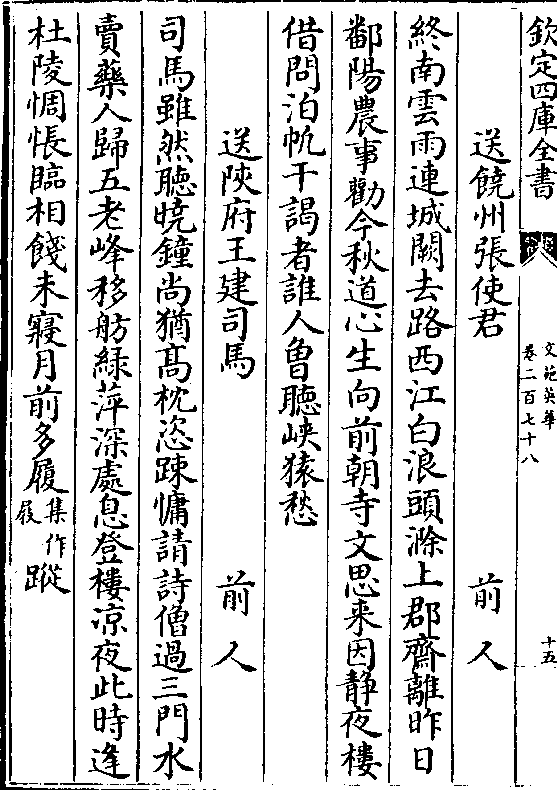 欽定四庫全書
文苑英華
卷二百七十八
十五
送饒州張使君
前人
終南雲雨連城闕去路西江白浪頭滁上郡齋離昨日
鄱陽農事勸今秋道心生向前朝寺文思来因静夜樓
借問泊帆干謁者誰人曾聽峽猿愁
送陜府王建司馬
前人
司馬雖然聽曉鐘尚猶髙枕恣踈慵請詩僧過三門水
賣藥人歸五老峰移舫綠萍深處息登樓涼夜此時逢
杜陵惆悵臨相餞未寢月前多履集作屐蹤